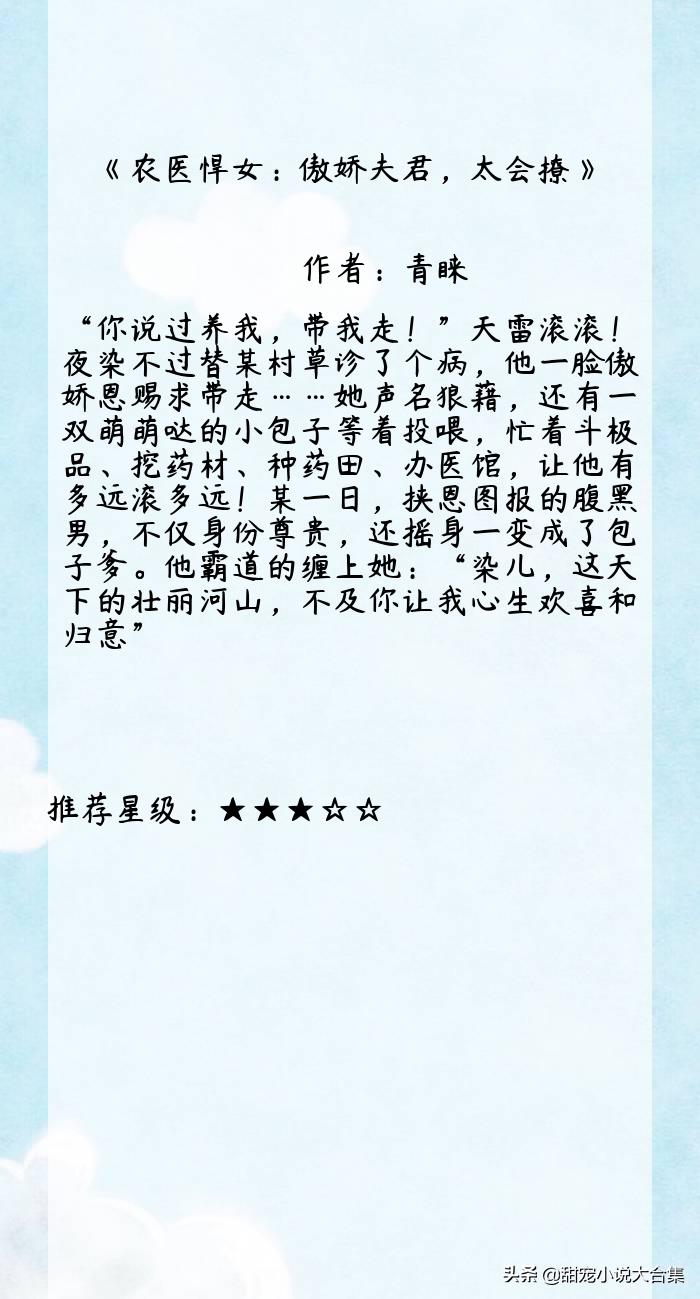 《农医悍女：傲娇夫君，太会撩》
作者：青睐
“你说过养我，带我走！”天雷滚滚！
夜染不过替某村草诊了个病，他一脸傲
娇恩赐求带走……她声名狼藉，还有一
双萌萌哒的小包子等着投喂，忙着斗极
品、挖药材、种药田、办医馆，让他有
多远滚多远！某一日，挟恩图报的腹黑
男，不仅身份尊贵，还摇身一变成了包
子爹。他霸道的缠上她：“染儿，这天
下的壮丽河山，不及你让我心生欢喜和
归意”
推荐星级：★★★☆☆
头条 @甜宠小说大合集